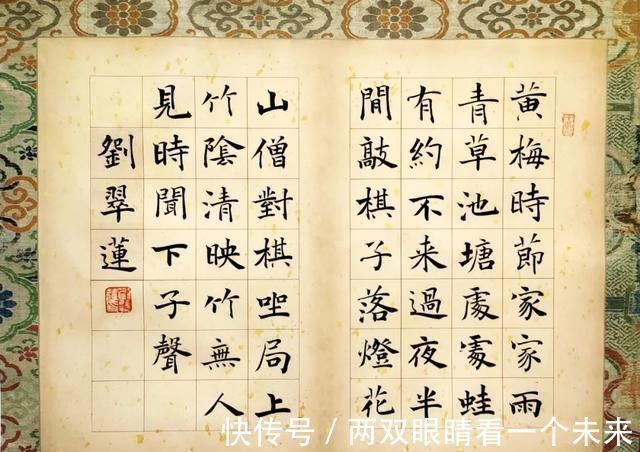 黄梅時節家家雨
青草池塘處處蛙
有約不来過夜半
間敲棋子落燈花
山僧對棋坐局上
竹陰清映竹無人
見時聞下子聲
劉翠蓮
快传号/两双眼睛看一个未来